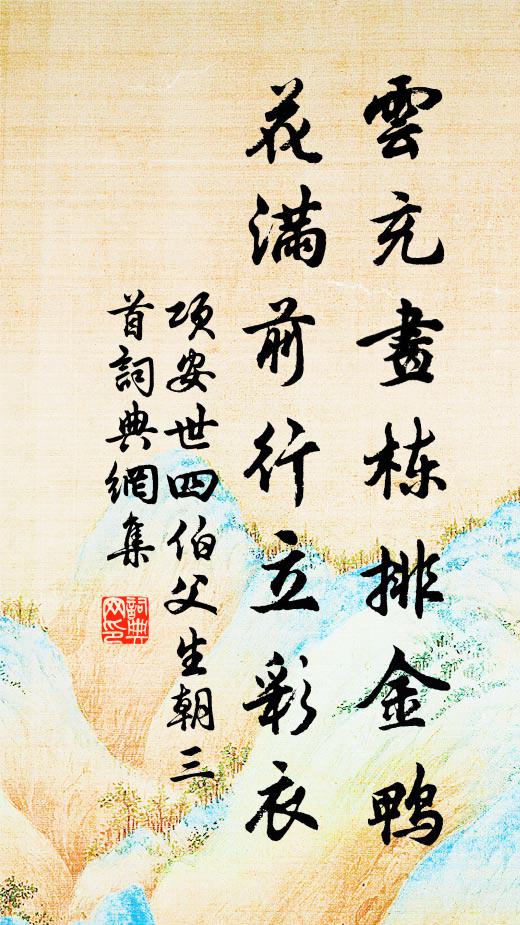 雲充畫栋排金鴨
花滿前行立彩衣
項安世四伯父生朝三
首詞典網集
詞典
网印